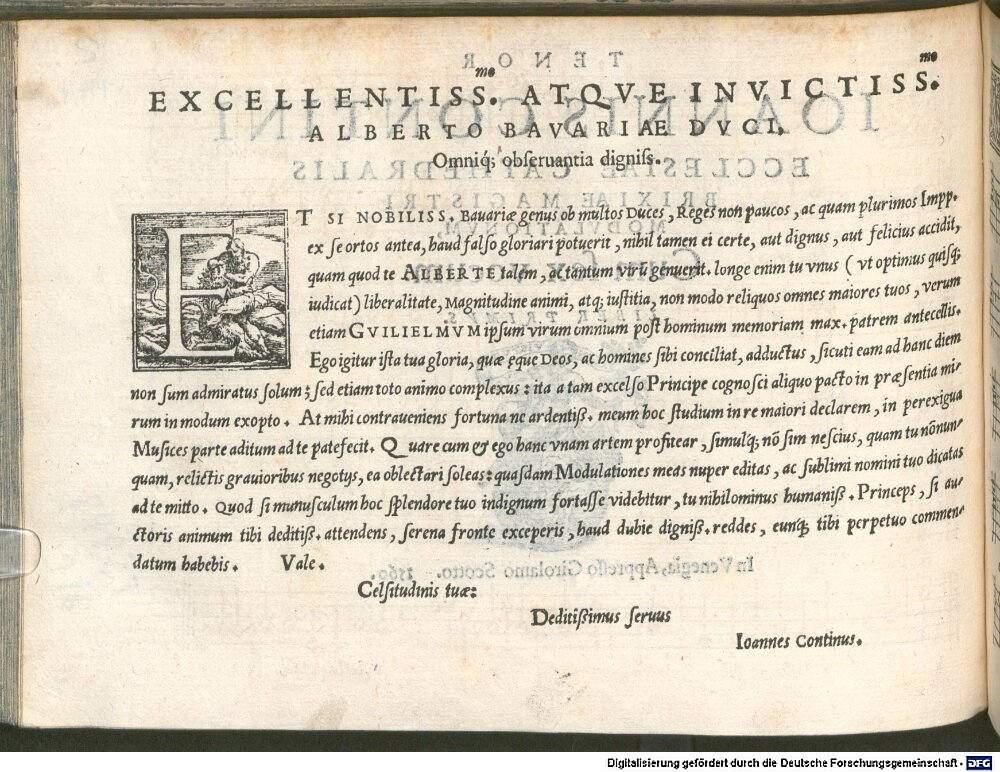 EXCELLENTISS.mo ATQVE INVICTISS.mo
ALBERTO BAVARIAE DVCI,
Omniq́; obſeruantia digniſs.
ET SI NOBILISS. Bauariæ genus ob multos Duces, Reges non paucos, ac quam plurimos Impp.
ex ſe ortos antea, haud falſo gloriari potuerit, nihil tamen ei certe, aut dignus, aut felicius accidit,
quam quod te ALBERTE talem, ac tantum virū genuerit. longe enim tu vnus ( vt optimus quiſq;
iudicat) liberalitate, Magnitudine animi, atq; iuſtitia, non modo reliquos omnes maiores tuos, verum
etiam GVILIELMVM ipſum virum omnium poſt hominum memoriam max. patrem antecellis.
Ego igitur iſta tua gloria, quæ ęque Deos, ac homines ſibi conciliat, adductus, ſicuti eam ad hanc diem
non ſum admiratus ſolum; ſed etiam toto animo complexus: ita a tam excelſo Principe cognoſci aliquo pacto in præſentia mi-
rum in modum exopto. At mihi contraueniens fortuna ne ardentiß. meum hoc ſtudium in re maiori declarem, in perexigua
Muſices parte aditum ad te patefecit. Quare cum & ego hanc vnam artem profitear, ſimulq; nō ſim neſcius, quam tu nōnun-
quam, relictis grauioribus negotys, ea oblectari ſoleas: quaſdam Modulationes meas nuper editas, ac ſublimi nomini tuo dicatas
ad te mitto. Quod ſi munuſculum hoc ſplendore tuo indignum fortaſſe videbitur, tu nihilominus humaniß. Princeps, ſi au-
ctoris animum tibi deditiß. attendens, ſerena fronte exceperis, haud dubie digniß. reddes, eunq; tibi perpetuo commen-
datum habebis. Vale.
Celſitudinis tuæ:
Deditißimus ſeruus
Ioannes Continus.
Digitalisierung gefördert durch die Deutsche Forschungsgemeinschaft - DFG